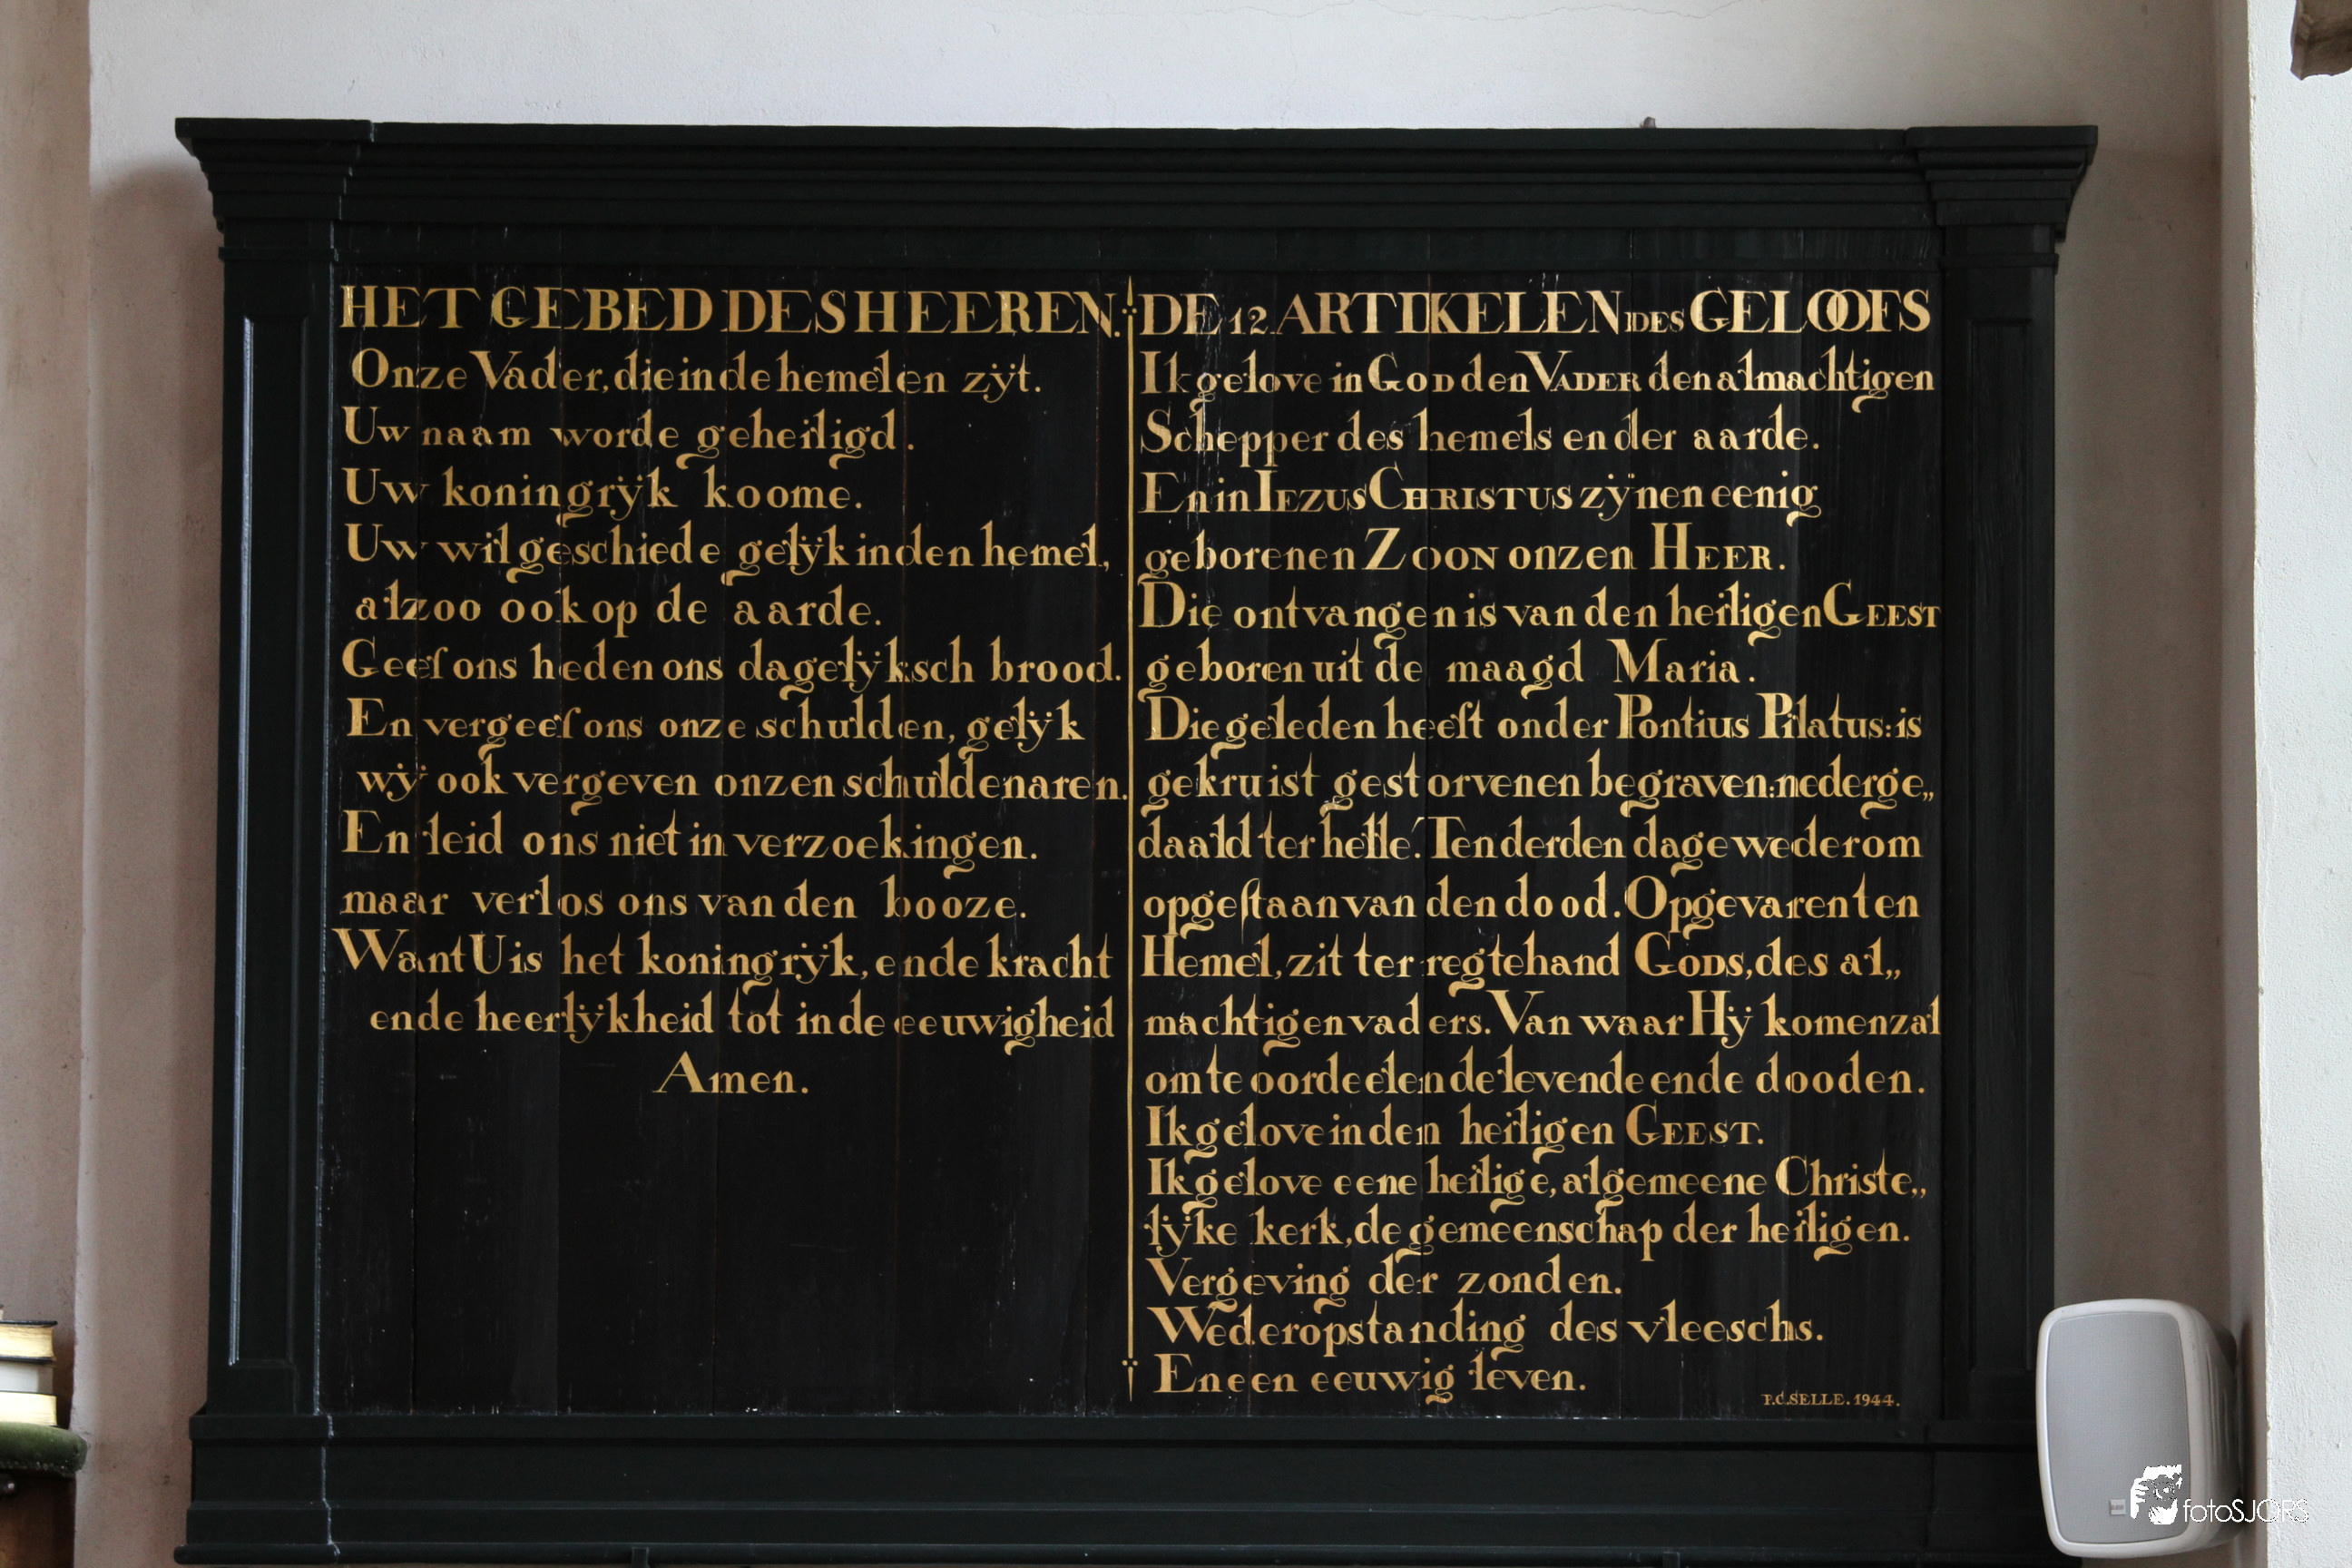 HET GEBED DES HEEREN.
Onze Vader, die in de hemelen zÿt.
Uw naam worde geheiligd.
Uw koningrÿk koome.
Uw wil geschiede gelÿk in den hemel,
alzoo ook op de aarde.
Geef ons heden ons dagelÿksch brood.
En vergeef ons onze schulden, gelÿk
wÿ ook vergeven onzen schuldenaren.
En leid ons niet in verzoekingen.
maar verlos ons van den booze.
Want U is het koningrÿk, ende kracht
ende heerlÿkheid tot in de eeuwigheid
Amen.
DE 12 ARTIKELEN DES GELOOFS
Ik gelove in GOD den VADER den almachtigen
Schepper des hemels en der aarde.
En in IEZUS CHRISTUS zÿnen eenig
geborenen ZOON onzen HEER.
Die ontvangen is van den heiligen GEEST
geboren uit de maagd Maria.
Die geleden heeft onder Pontius Pilatus: is
gekruist gestorven en begraven: nederge„
daald ter helle. Ten derden dage wederom
opgeſtaan van den dood. Opgevaren ten
Hemel, zit ter regtehand GODS, des al„
machtigen vaders. Van waar Hÿ komen zal
om te oordeelen de levende ende dooden.
Ik gelove in den heiligen GEEST.
Ik gelove eene heilige, algemeene Christe„
lÿke kerk, de gemeenschap der heiligen.
Vergeving der zonden.
Wederopstanding des vleeschs.
En een eeuwig leven.
P.C.SELLE. 1944.
fotoSJORS